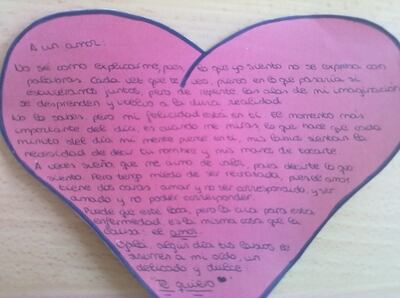 A un amor:
No sé como explicarme, pues lo que yo siento no se expresa con
palabras. Cada vez que te veo, pienso en lo que pasaría si
estuvieramos juntos, pero de repente las alas de mi imaginación
se desprenden y vuelvo a la dura realidad
No lo sabes pero mi felicidad esta en ti. El momento más
importante del día, es cuando me miras lo que hace que cada
minuto del día mi mente piense en ti, mis labios sientan la
necesidad de decir tu nombre y mis manos de tocarte.
A veces sueño que me armo de valor, para decirte lo que
siento. Pero tengo miedo de ser rechazada, pues el amor
tiene dos caras: amar y no ser correspondido, y ser
amado y no poder corresponder.
Puede que esté loca, pero la cura para esta
enfermedad es la misma cosa que la
causa: el amor.
Ojalá, algún día tus labios le
susurren a mi oído, un
delicado y dulce
"Te quiero"